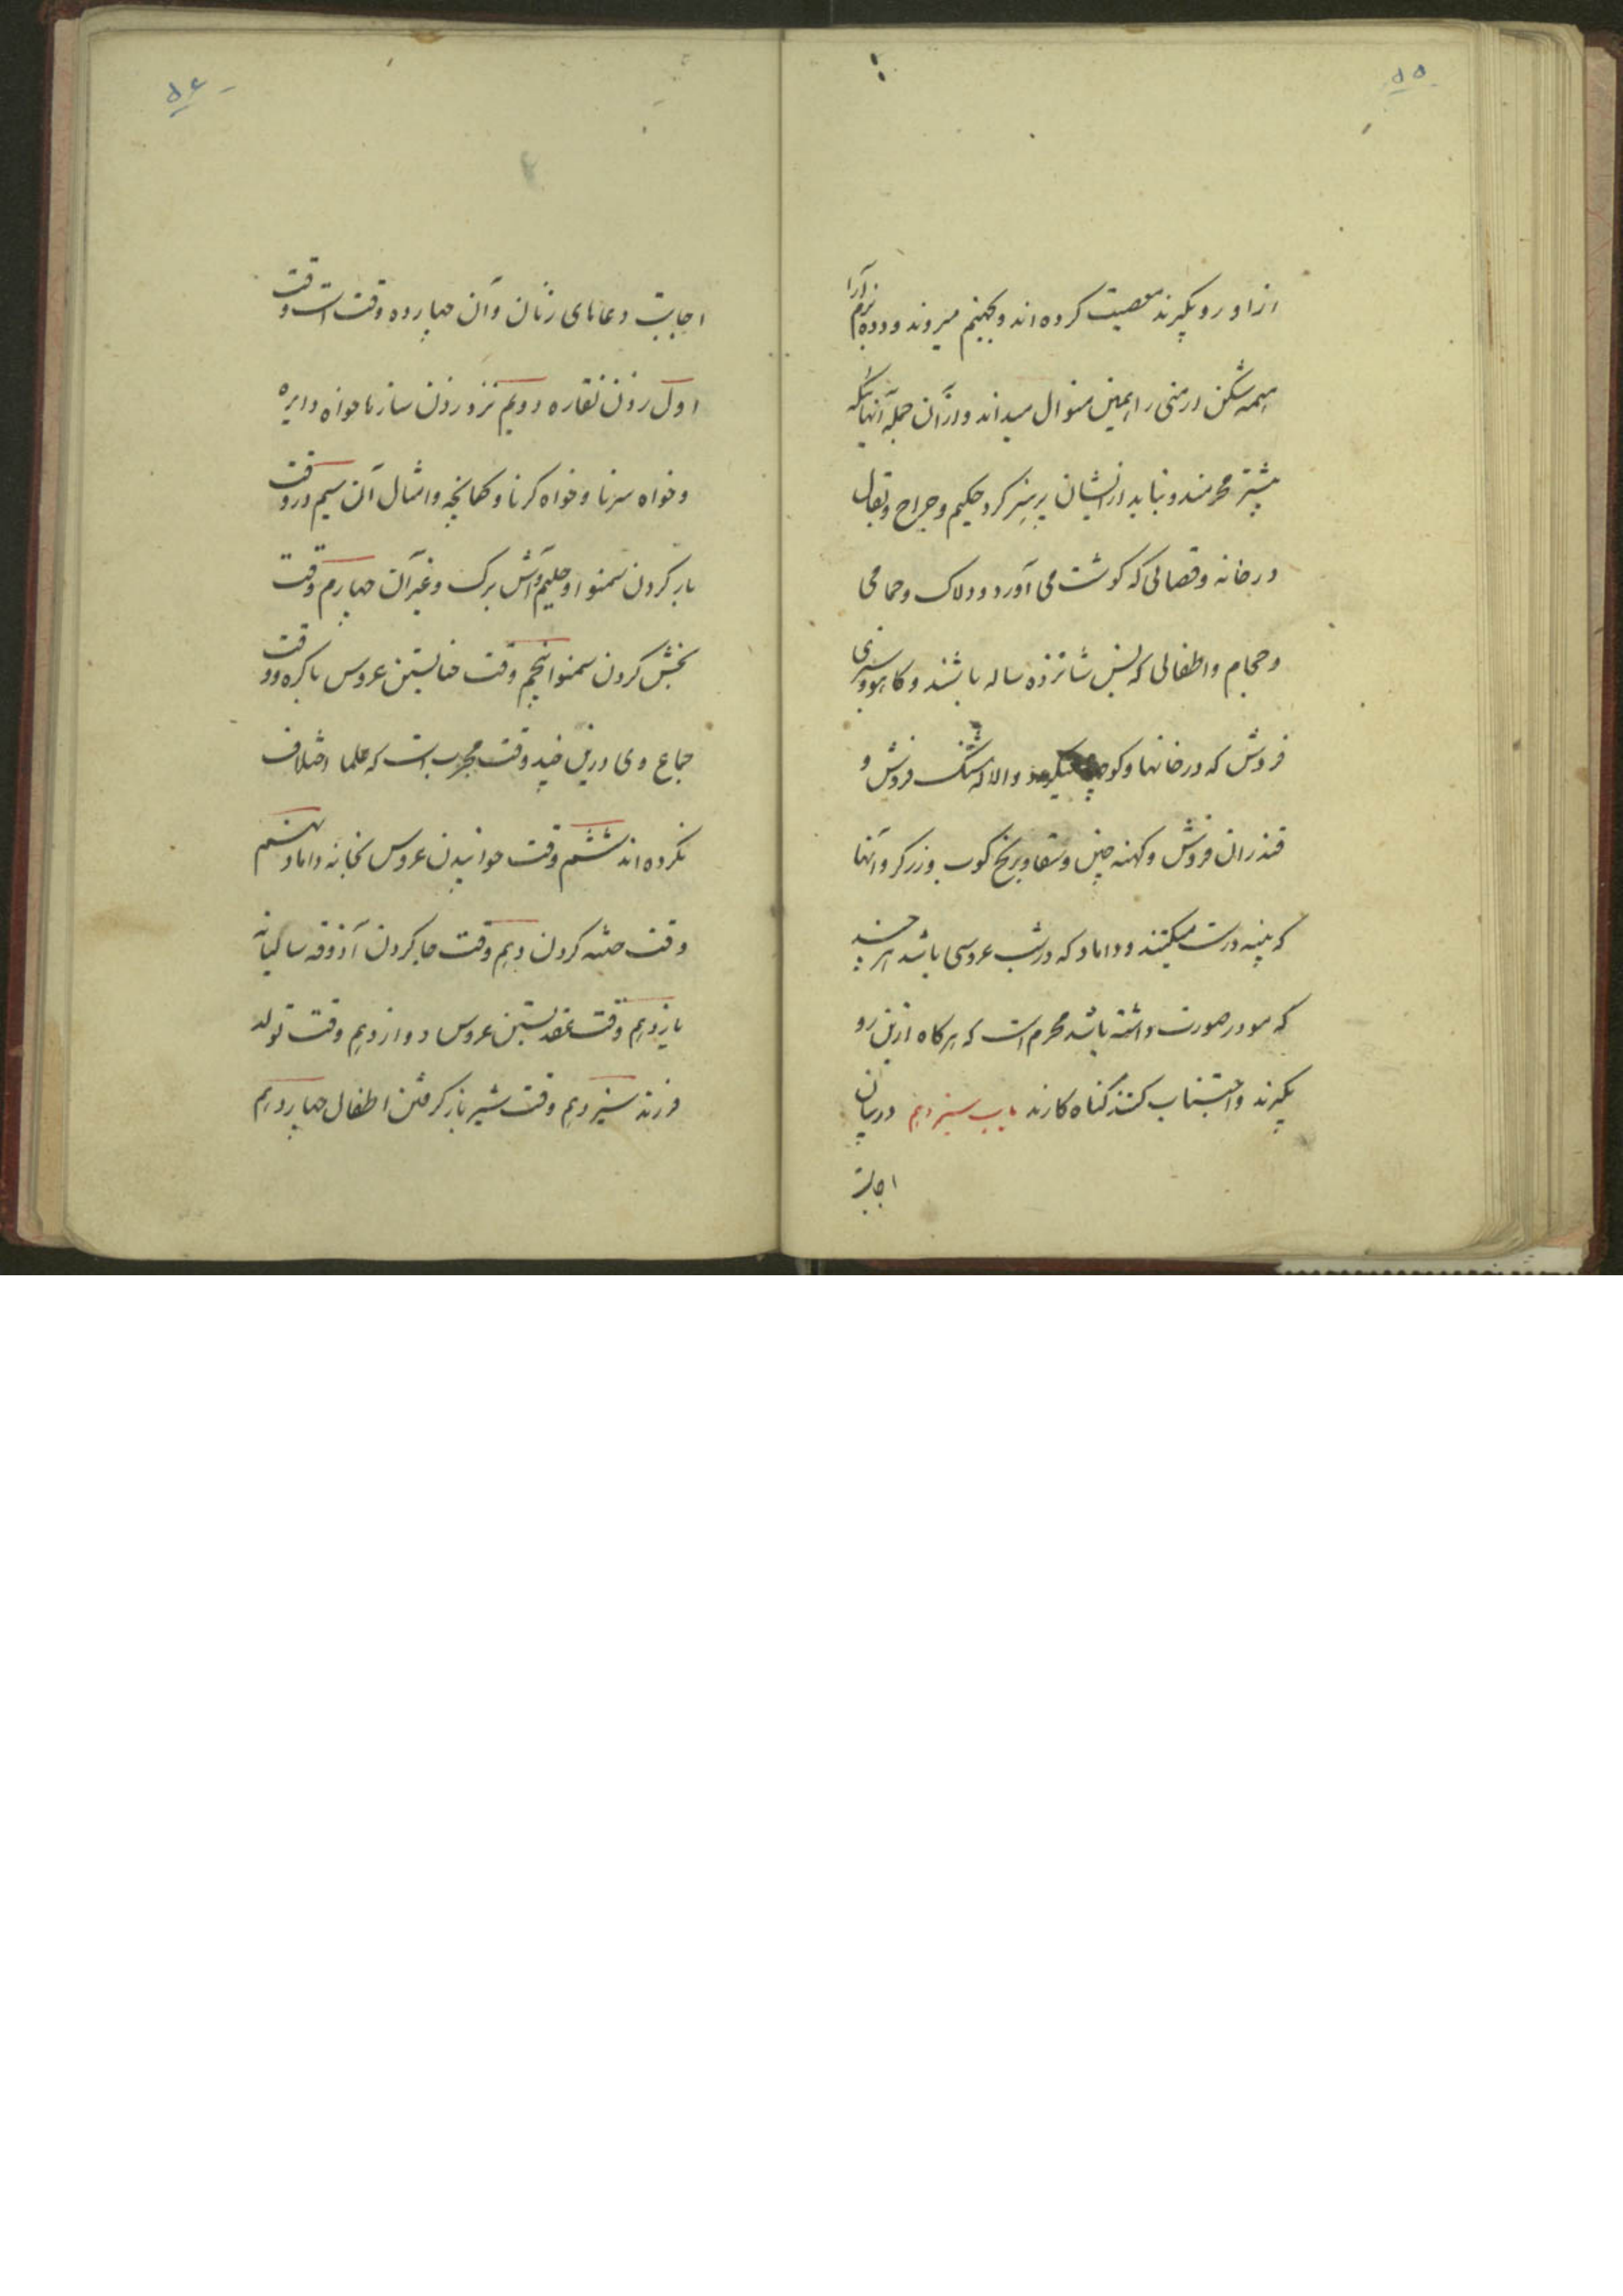 ۵۵
از او رو بگیرند معصیت کرده اند و بجهنم میروند و دده بزم آرا
هیمه شکن ارمنی را همین منوال میداند و از آن جمله آنهائیکه
بیشتر محرمند و نباید از ایشان پرهیز کرد حکیم و جراح و بقال
در خانه و قصابی که کوشت می آورد و دلاک و حمامی
و حجام و اطفالی که بسن شانزده ساله باشند و کاهو و سبزی
فروش که در خانها و کوچه والا که شتک فروش و
قندران فروش و کهنه چین و سقا و برنج کوب و زرکر و آنها
که پنبه درست میکنند و داماد که در شب عروسی باشد هر چند
که مو در صورت داشته باشد محرم است که هرکاه ازین رو
بگیرند و اجتناب کنند کناه کارند باب سیزدهم در بیان
اجابت
۵۶
اجابت دعاهای زنان و آن چهارده وقت است وقت
اول زدن نقاره دویم نزد زدن سازها خواه دایره
و خواه سرنا و خواه کرنا و کمانچه و امثال آن سیم در وقت
بار کردن سمنو او حلیم و آش برک و غیر آن چهارم وقت
بخش کردن سمنو ا پنجم وقت حنا بستن عروس باکره و و
جماع وی درین چند وقت مجرب است که علما اختلاف
نکرده اند ششم وقت خوانیدن عروس بخانه داماد نهم
وقت ختنه کردن دهم وقت جا کردن آذوقه سالیانه
یازدهم وقت عقد بستن عروس دوازدهم وقت تولد
فرزند سیزدهم وقت شیر باز کرفتن اطفال چهاردهم